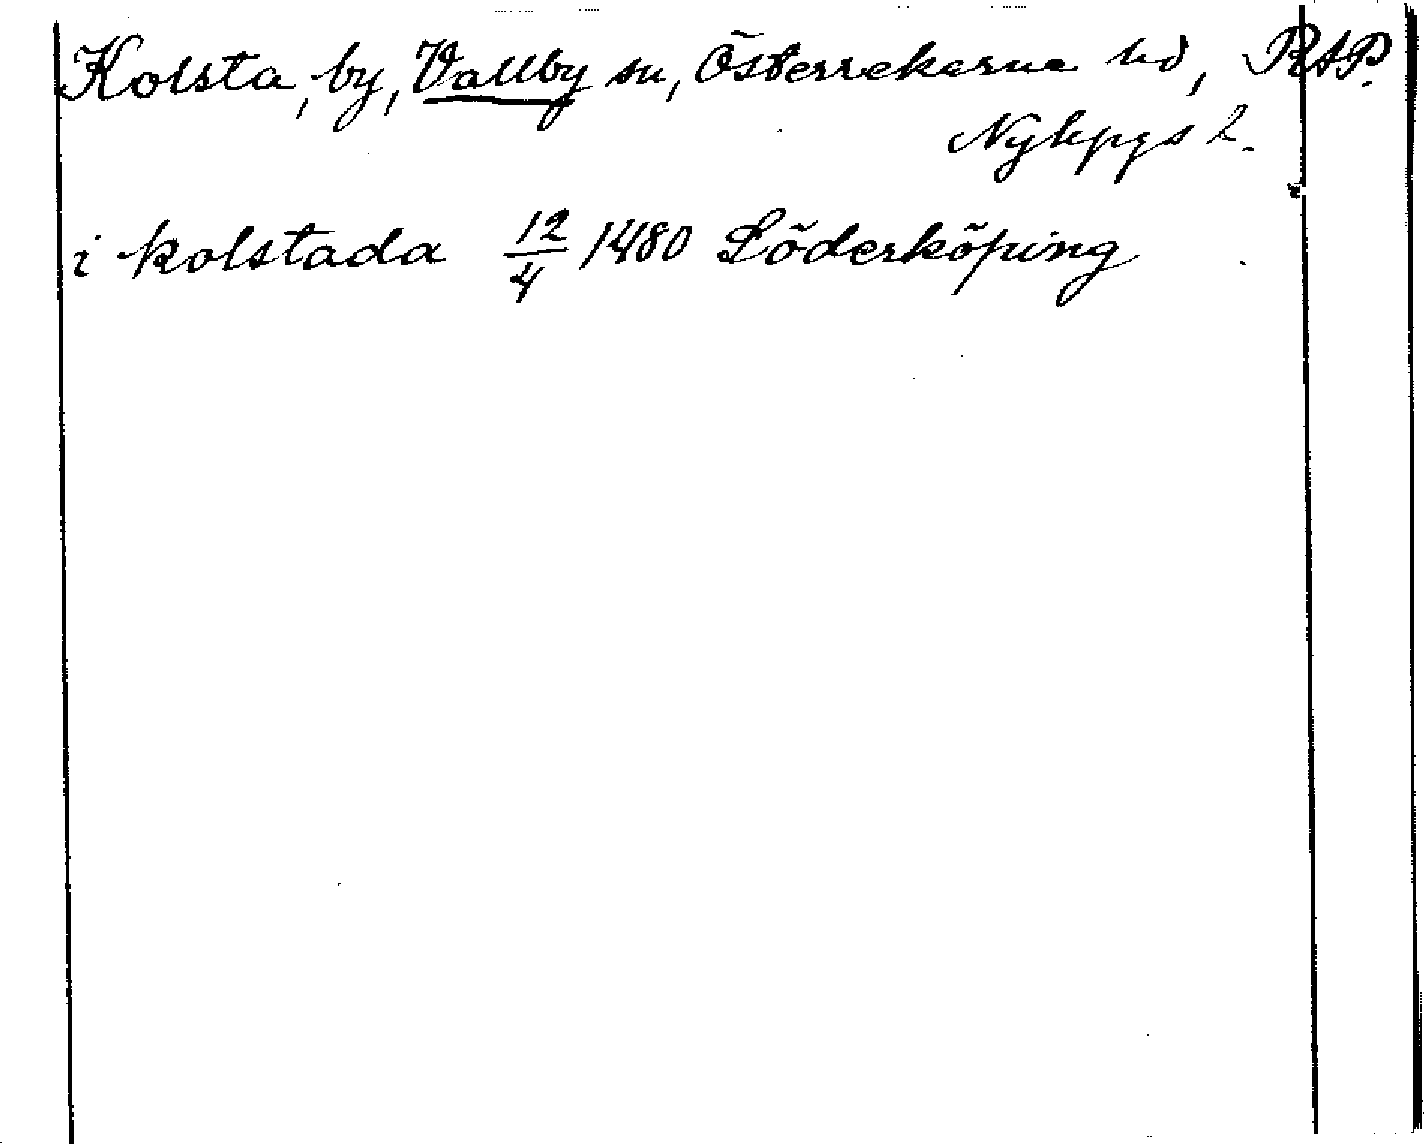 Kolsta, by, Vallby sn, Österrekarne hd, RAP.
Nykpgs l.
i kolstada 12/4 1480 Söderköping